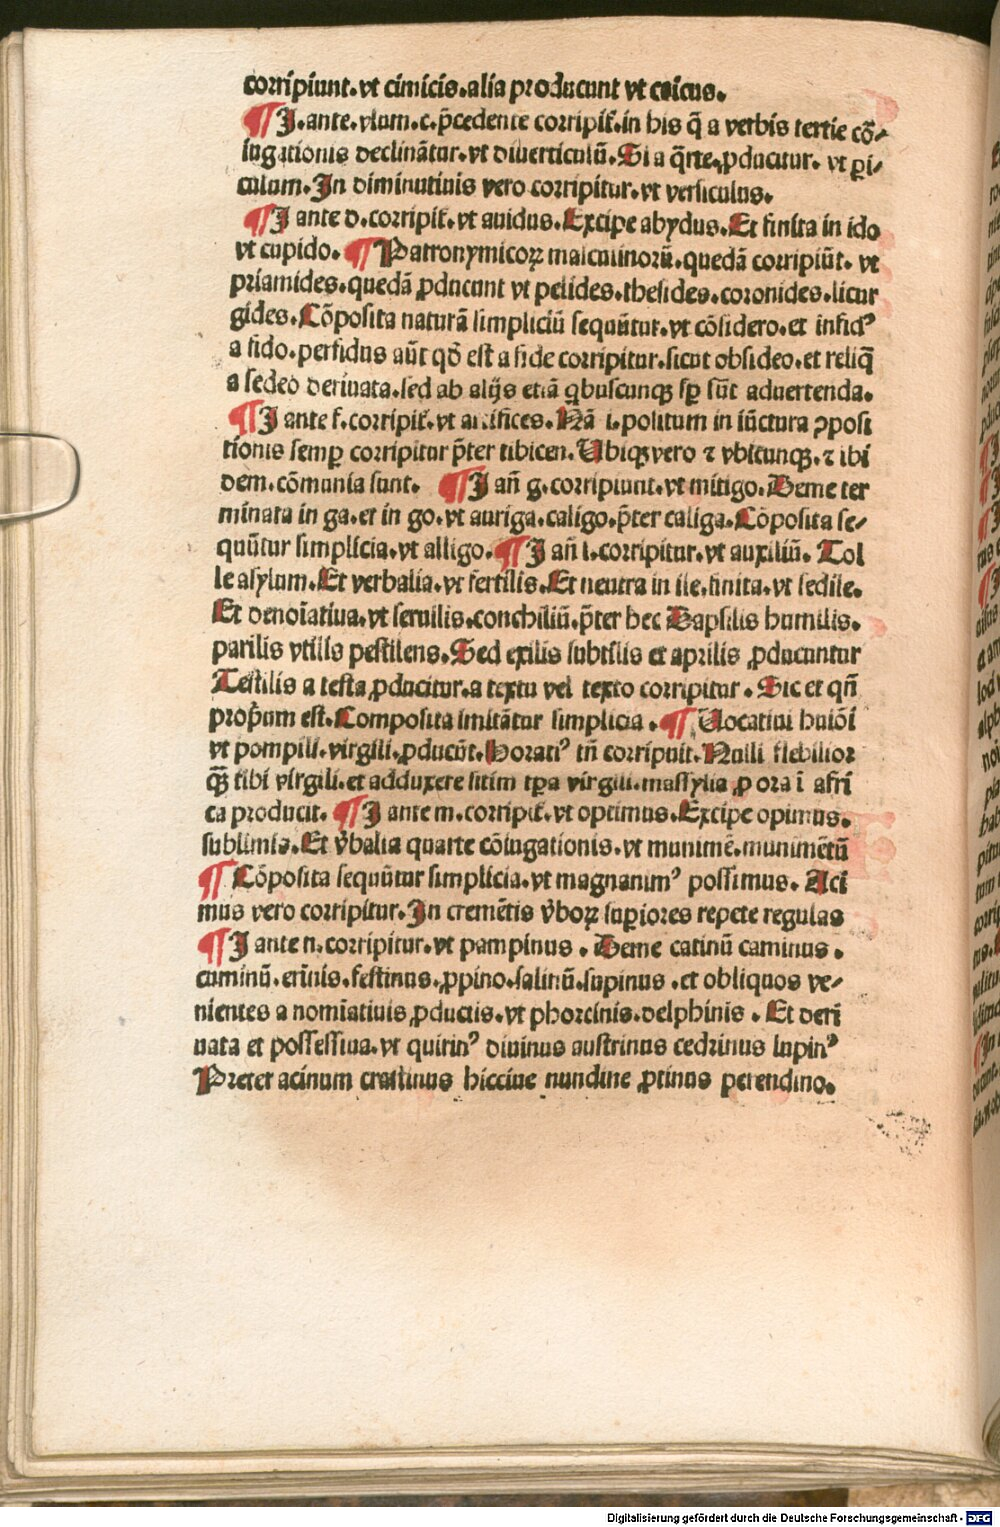 corripiunt. vt cimicis. alia producunt vt caicus.
¶ I. ante. vlum. c. p̄cedente corripit᷑. in his q̄ a verbis tertie cō⸗
iugationis declinātur. vt diuerticulū. Si a q̄rte ꝓducitur. vt ꝑi⸗
culum. In diminutiuis vero corripitur. vt versiculus.
¶ I ante d. corripit᷑. vt auidus. Excipe abydus. Et finita in ido
vt cupido. ¶ Patronymicoꝝ masculinorū. quedā corripiūt. vt
priamides. quedā ꝓducunt vt pelides. thesides. coronides. licur
gides. Cōposita naturā simpliciū sequūtur. vt cōsidero. et infidꝰ
a fido. perfidus aūt qd̄ est a fide corripitur. sicut obsideo. et reliq̄
a sedeo deriuata. sed ab alijs etiā qbuscunqꝫ sꝑ sūt aduertenda.
¶ I ante f. corripit᷑. vt artifices. Nā i. positum in iūctura ꝯposi
tionis semꝑ corripitur p̄ter tibicen. Vbiqꝫ vero ⁊ vbicunqꝫ. ⁊ ibi
dem. cōmunia sunt. ¶ I añ g. corripiunt. vt mitigo. Deme ter
minata in ga. et in go. vt auriga. caligo. p̄ter caliga. Cōposita se⸗
quūtur simplicia. vt alligo. ¶ I añ l. corripitur. vt auxiliū. Tol
le asylum. Et verbalia. vt fertilis. Et neutra in ile. finita. vt sedile.
Et denoīatiua. vt seruilis. conchiliū. p̄ter hec Dapsilis humilis.
parilis vtilis pestilens. Sed exilis subtilis et aprilis ꝓducuntur
Testilis a testa ꝓducitur. a textu vel texto corripitur. Sic et qñ
prop̄um est. Composita imitātur simplicia. ¶ Vocatiui huiōi
vt pompili. virgili. ꝓducūt. Horatiꝰ tñ corripuit. Nulli flebilior
qꝫ̄ tibi virgili. et adduxere sitim tꝑa virgili. massylia ꝓ ora ī afri
ca producit. ¶ I ante m. corripit᷑. vt optimus. Excipe opimus.
sublimis. Et v̄balia quarte cōiugationis. vt munimē. munimētū
¶ Cōposita sequūtur simplicia. vt magnanimꝰ possimus. Aci
mus vero corripitur. In cremētis v̄boꝝ suꝑiores repete regulas
¶ I ante n. corripitur. vt pampinus. Deme catinū caminus.
cuminū. erīnis. festinus. ꝓpino. salinū. supinus. et obliquos ve⸗
nientes a nomīatiuis ꝓductis. vt phorcinis. delphinis. Et deri
uata et possessiua. vt quirinꝰ diuinus austrinus cedrinus lupinꝰ
Preter acinum crastinus hiccine nundine ꝓtinus perendino.
Digitalisierung gefördert durch die Deutsche Forschungsgemeinschaft - DFG